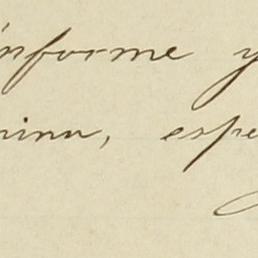 informe y
nina, espe